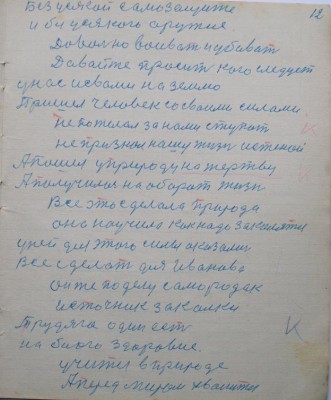 Без всякой самозащите
12
и без всякого оружие.
Довольно воиват и убиват
Давайте просит кого следует
у нас и с вами на землю
Пришел человек со своими силами.
Не пожелал за нами ступат
не признал нашу жизн истеной
А пошел у природу на жертву
А получилос на оборот жизн
Все это сделала природа
она научила как надо закалятся
у ней для этого силы оказалис
Все сделат для Иванова
он же по делу самородак
источник закалки
Трудяга один ест
на благо здоровие.
учится в природе
А перед миром хвалится
К
К